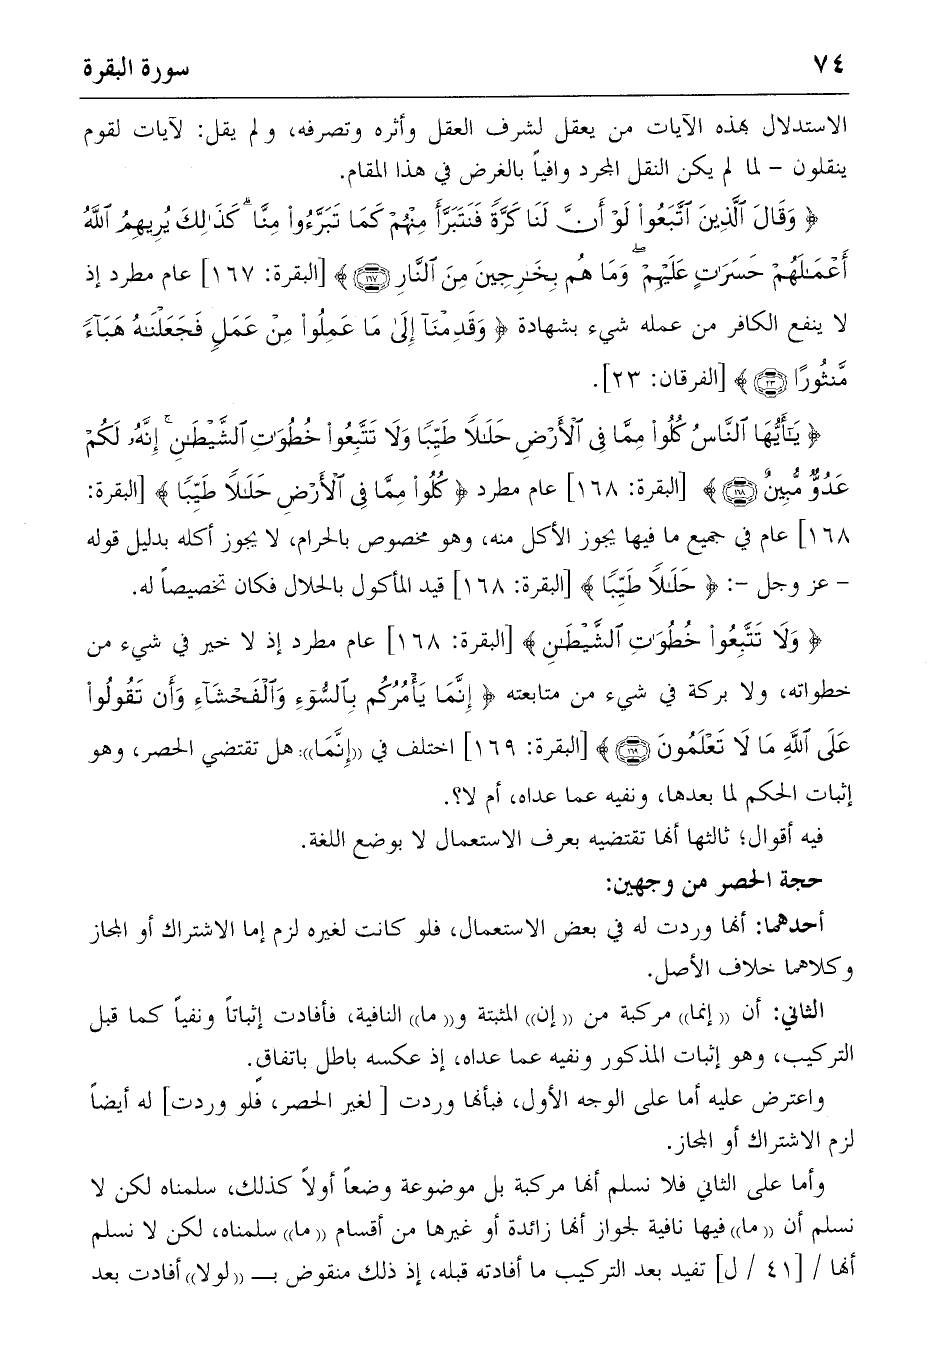 ٧٤
سورة البقرة
الاستدلال بهذه الآيات من يعقل لشرف العقل وأثره وتصرفه، ولم يقل: لآيات لقوم
ينقلون – لما لم يكن النقل المجرد وافياً بالغرض في هذا المقام.
﴿ وَقَالَ ٱلَّذِينَ ٱتَّبَعُوا۟ لَوْ أَنَّ لَنَا كَرَّةً فَنَتَبَرَّأَ مِنْهُمْ كَمَا تَبَرَّءُوا۟ مِنَّا ۗ كَذَٰلِكَ يُرِيهِمُ ٱللَّهُ
أَعْمَـٰلَهُمْ حَسَرَٰتٍ عَلَيْهِمْ ۖ وَمَا هُم بِخَـٰرِجِينَ مِنَ ٱلنَّارِ ١٦٧ ﴾ [البقرة: ١٦٧] عام مطرد إذ
لا ينفع الكافر من عمله شيء بشهادة ﴿ وَقَدِمْنَآ إِلَىٰ مَا عَمِلُوا۟ مِنْ عَمَلٍ فَجَعَلْنَـٰهُ هَبَآءً
مَّنثُورًا ٢٣ ﴾ [الفرقان: ٢٣].
﴿ يَـٰٓأَيُّهَا ٱلنَّاسُ كُلُوا۟ مِمَّا فِى ٱلْأَرْضِ حَلَـٰلًا طَيِّبًا وَلَا تَتَّبِعُوا۟ خُطُوَٰتِ ٱلشَّيْطَـٰنِ ۚ إِنَّهُۥ لَكُمْ
عَدُوٌّ مُّبِينٌ ١٦٨ ﴾ [البقرة: ١٦٨] عام مطرد ﴿ كُلُوا۟ مِمَّا فِى ٱلْأَرْضِ حَلَـٰلًا طَيِّبًا ﴾ [البقرة:
١٦٨] عام في جميع ما فيها يجوز الأكل منه، وهو مخصوص بالحرام، لا يجوز أكله بدليل قوله
– عز وجل –: ﴿ حَلَـٰلًا طَيِّبًا ﴾ [البقرة: ١٦٨] قيد المأكول بالحلال فكان تخصيصاً له.
﴿ وَلَا تَتَّبِعُوا۟ خُطُوَٰتِ ٱلشَّيْطَـٰنِ ﴾ [البقرة: ١٦٨] عام مطرد إذ لا خير في شيء من
خطواته، ولا بركة في شيء من متابعته ﴿ إِنَّمَا يَأْمُرُكُم بِٱلسُّوٓءِ وَٱلْفَحْشَآءِ وَأَن تَقُولُوا۟
عَلَى ٱللَّهِ مَا لَا تَعْلَمُونَ ١٦٩ ﴾ [البقرة: ١٦٩] اختلف في ((إِنَّمَا)): هل تقتضي الحصر، وهو
إثبات الحكم لما بعدها، ونفيه عما عداه، أم لا؟.
فيه أقوال؛ ثالثها أنها تقتضيه بعرف الاستعمال لا بوضع اللغة.
حجة الحصر من وجهين:
أحدهما: أنها وردت له في بعض الاستعمال، فلو كانت لغيره لزم إما الاشتراك أو المجاز
وكلاهما خلاف الأصل.
الثاني: أن (( إنما)) مركبة من (( إن)) المثبتة و(( ما)) النافية، فأفادت إثباتاً ونفياً كما قبل
التركيب، وهو إثبات المذكور ونفيه عما عداه، إذ عكسه باطل باتفاق.
واعترض عليه أما على الوجه الأول، فبأنها وردت [ لغير الحصر، فلو وردت] له أيضاً
لزم الاشتراك أو المجاز.
وأما على الثاني فلا نسلم أنها مركبة بل موضوعة وضعاً أولاً كذلك، سلمناه لكن لا
نسلم أن (( ما)) فيها نافية لجواز أنها زائدة أو غيرها من أقسام (( ما)) سلمناه، لكن لا نسلم
أنها / [٤١ / ل] تفيد بعد التركيب ما أفادته قبله، إذ ذلك منقوض بـ ((لولا)) أفادت بعد